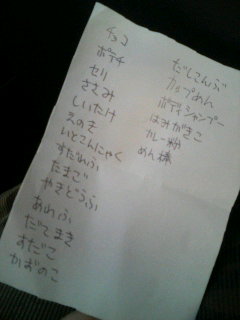 チョコ
ポテチ
セリ
ささみ
しいたけ
えのき
いとこんにゃく
すだれふ
たまご
やきどうふ
あわふ
だてまき
すだこ
かずのこ
だしこんぶ
カップめん
ボディシャンプー
はみがきこ
カレー粉
めん棒